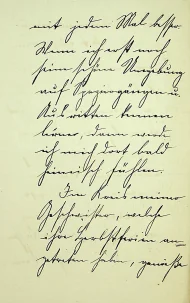 mit jedem Mal besser.
Wenn ich erst noch
seine schöne Umgebung
auf Spaziergängen u.
Ausritten kennen
lerne, dann werde
ich mich dort bald
heimisch fühlen.
Im Kreis meiner
Geschwister, welche
ihre Herbstferien an-
getreten haben, genieße